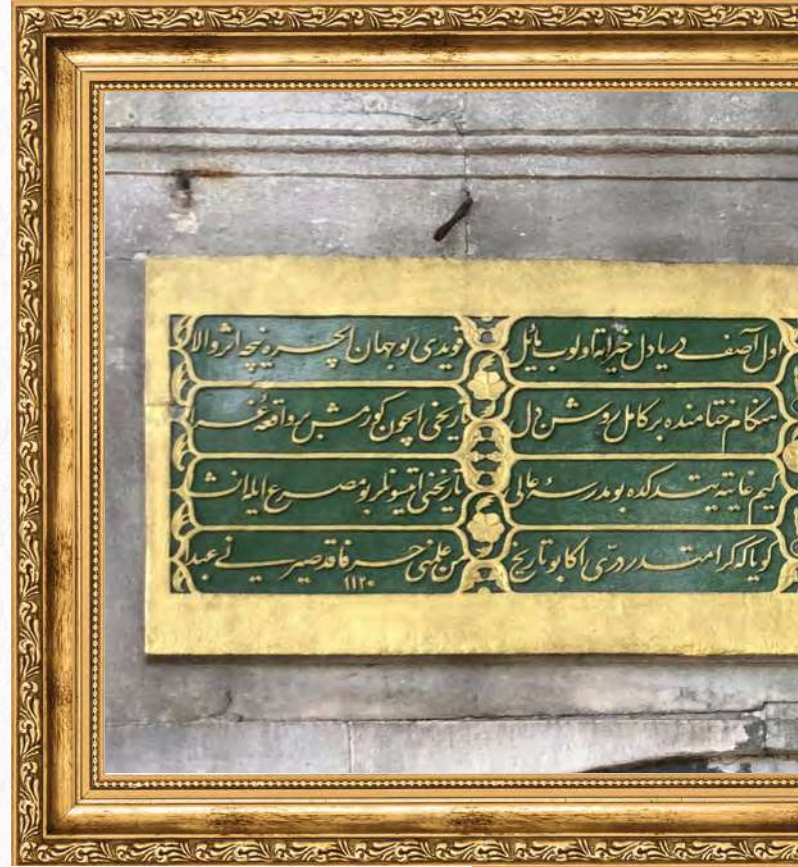 اول آصف دریادل خیراته اولوب مائل قویدی بو جهان ایچره نیجه اثر والا
هنکام ختامنده بر کامل روشن دل تاریخی ایچون کورمش بر واقعهٔ غرا
کیم غایته یتدکده بو مدرسهٔ عالی تاریخنی ایتسونلر بو مصرع ایله انشا
کویا که کرامتدر درّی اکا بو تاریخ من علمنی حرفا قد صیرنی عبدا
۱۱۲۰